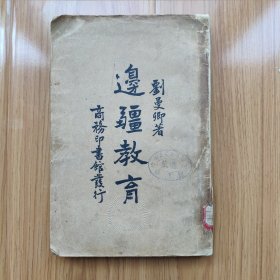 劉曼卿著
邊疆教育
商務印書館發行